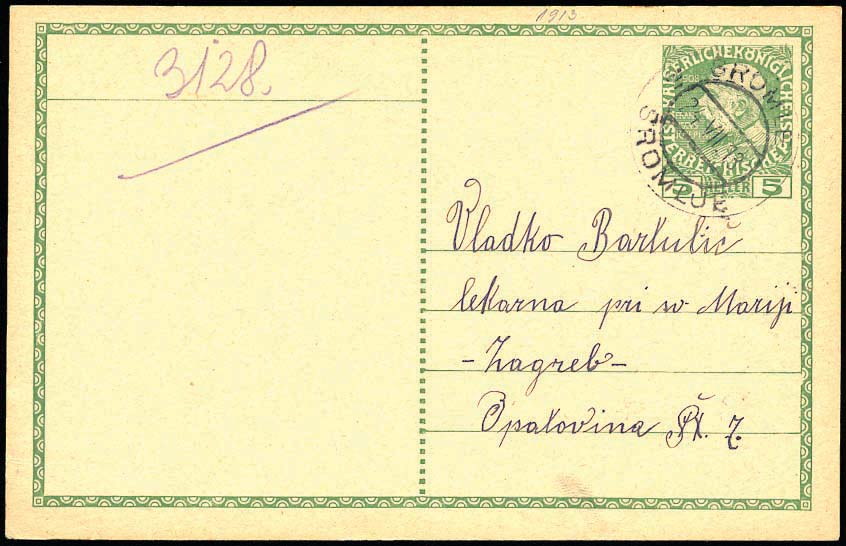 1913
3128.
KAISERLICHE KÖNIGLICHE
ÖSTERREICHISCHE
HELLER 5
SROMLJE
25 VII 13
SROMLJE
Vladko Barkulić
lekarna pri sv Mariji
-Zagreb-
Opatovina Št. 7.